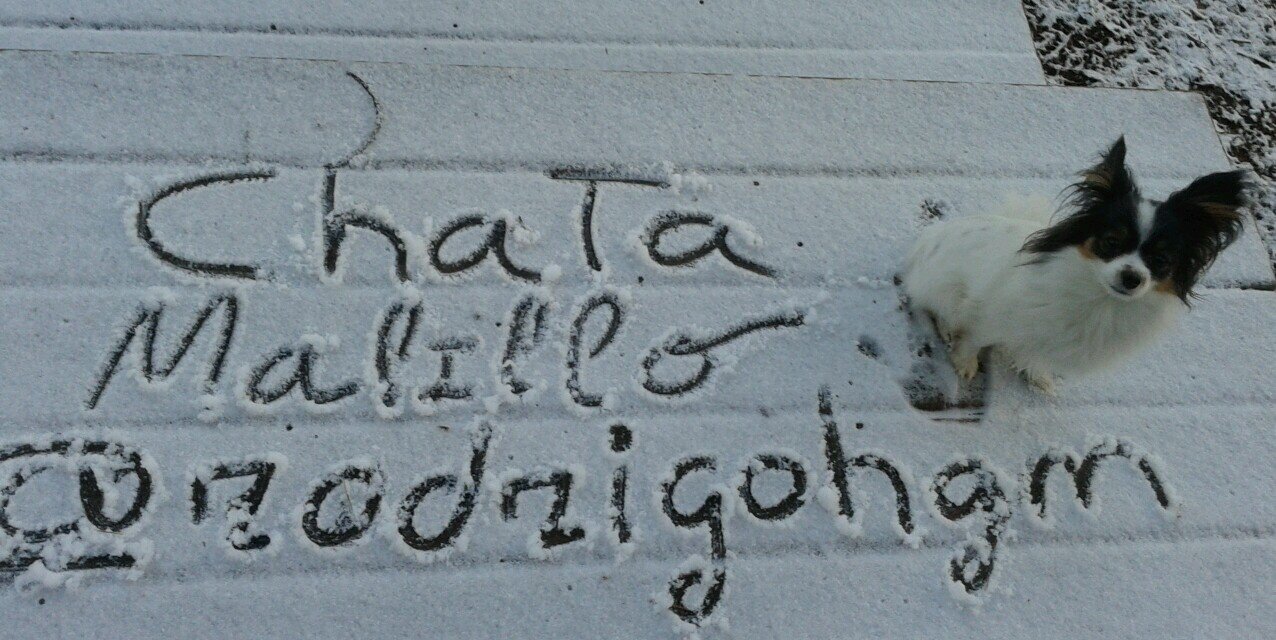 ChaTa
Malillo
@rodrigohgm